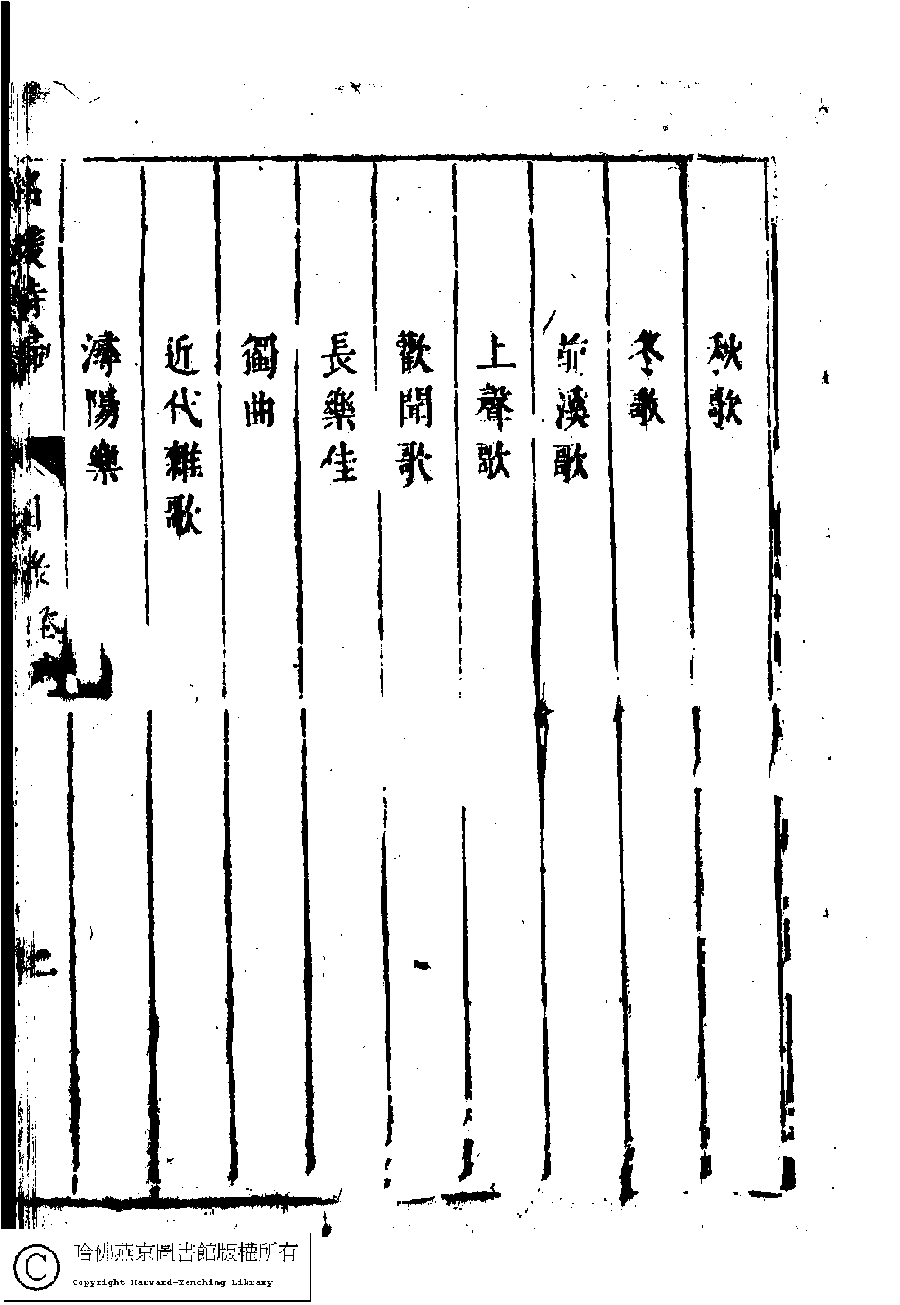 秋歌
冬歌
前溪歌
上聲歌
歡聞歌
長樂佳
獨曲
近代雜歌
潯陽樂
名媛詩歸
目錄
二
哈佛燕京圖書館版權所有
Copyright Harvard-Yenching Library